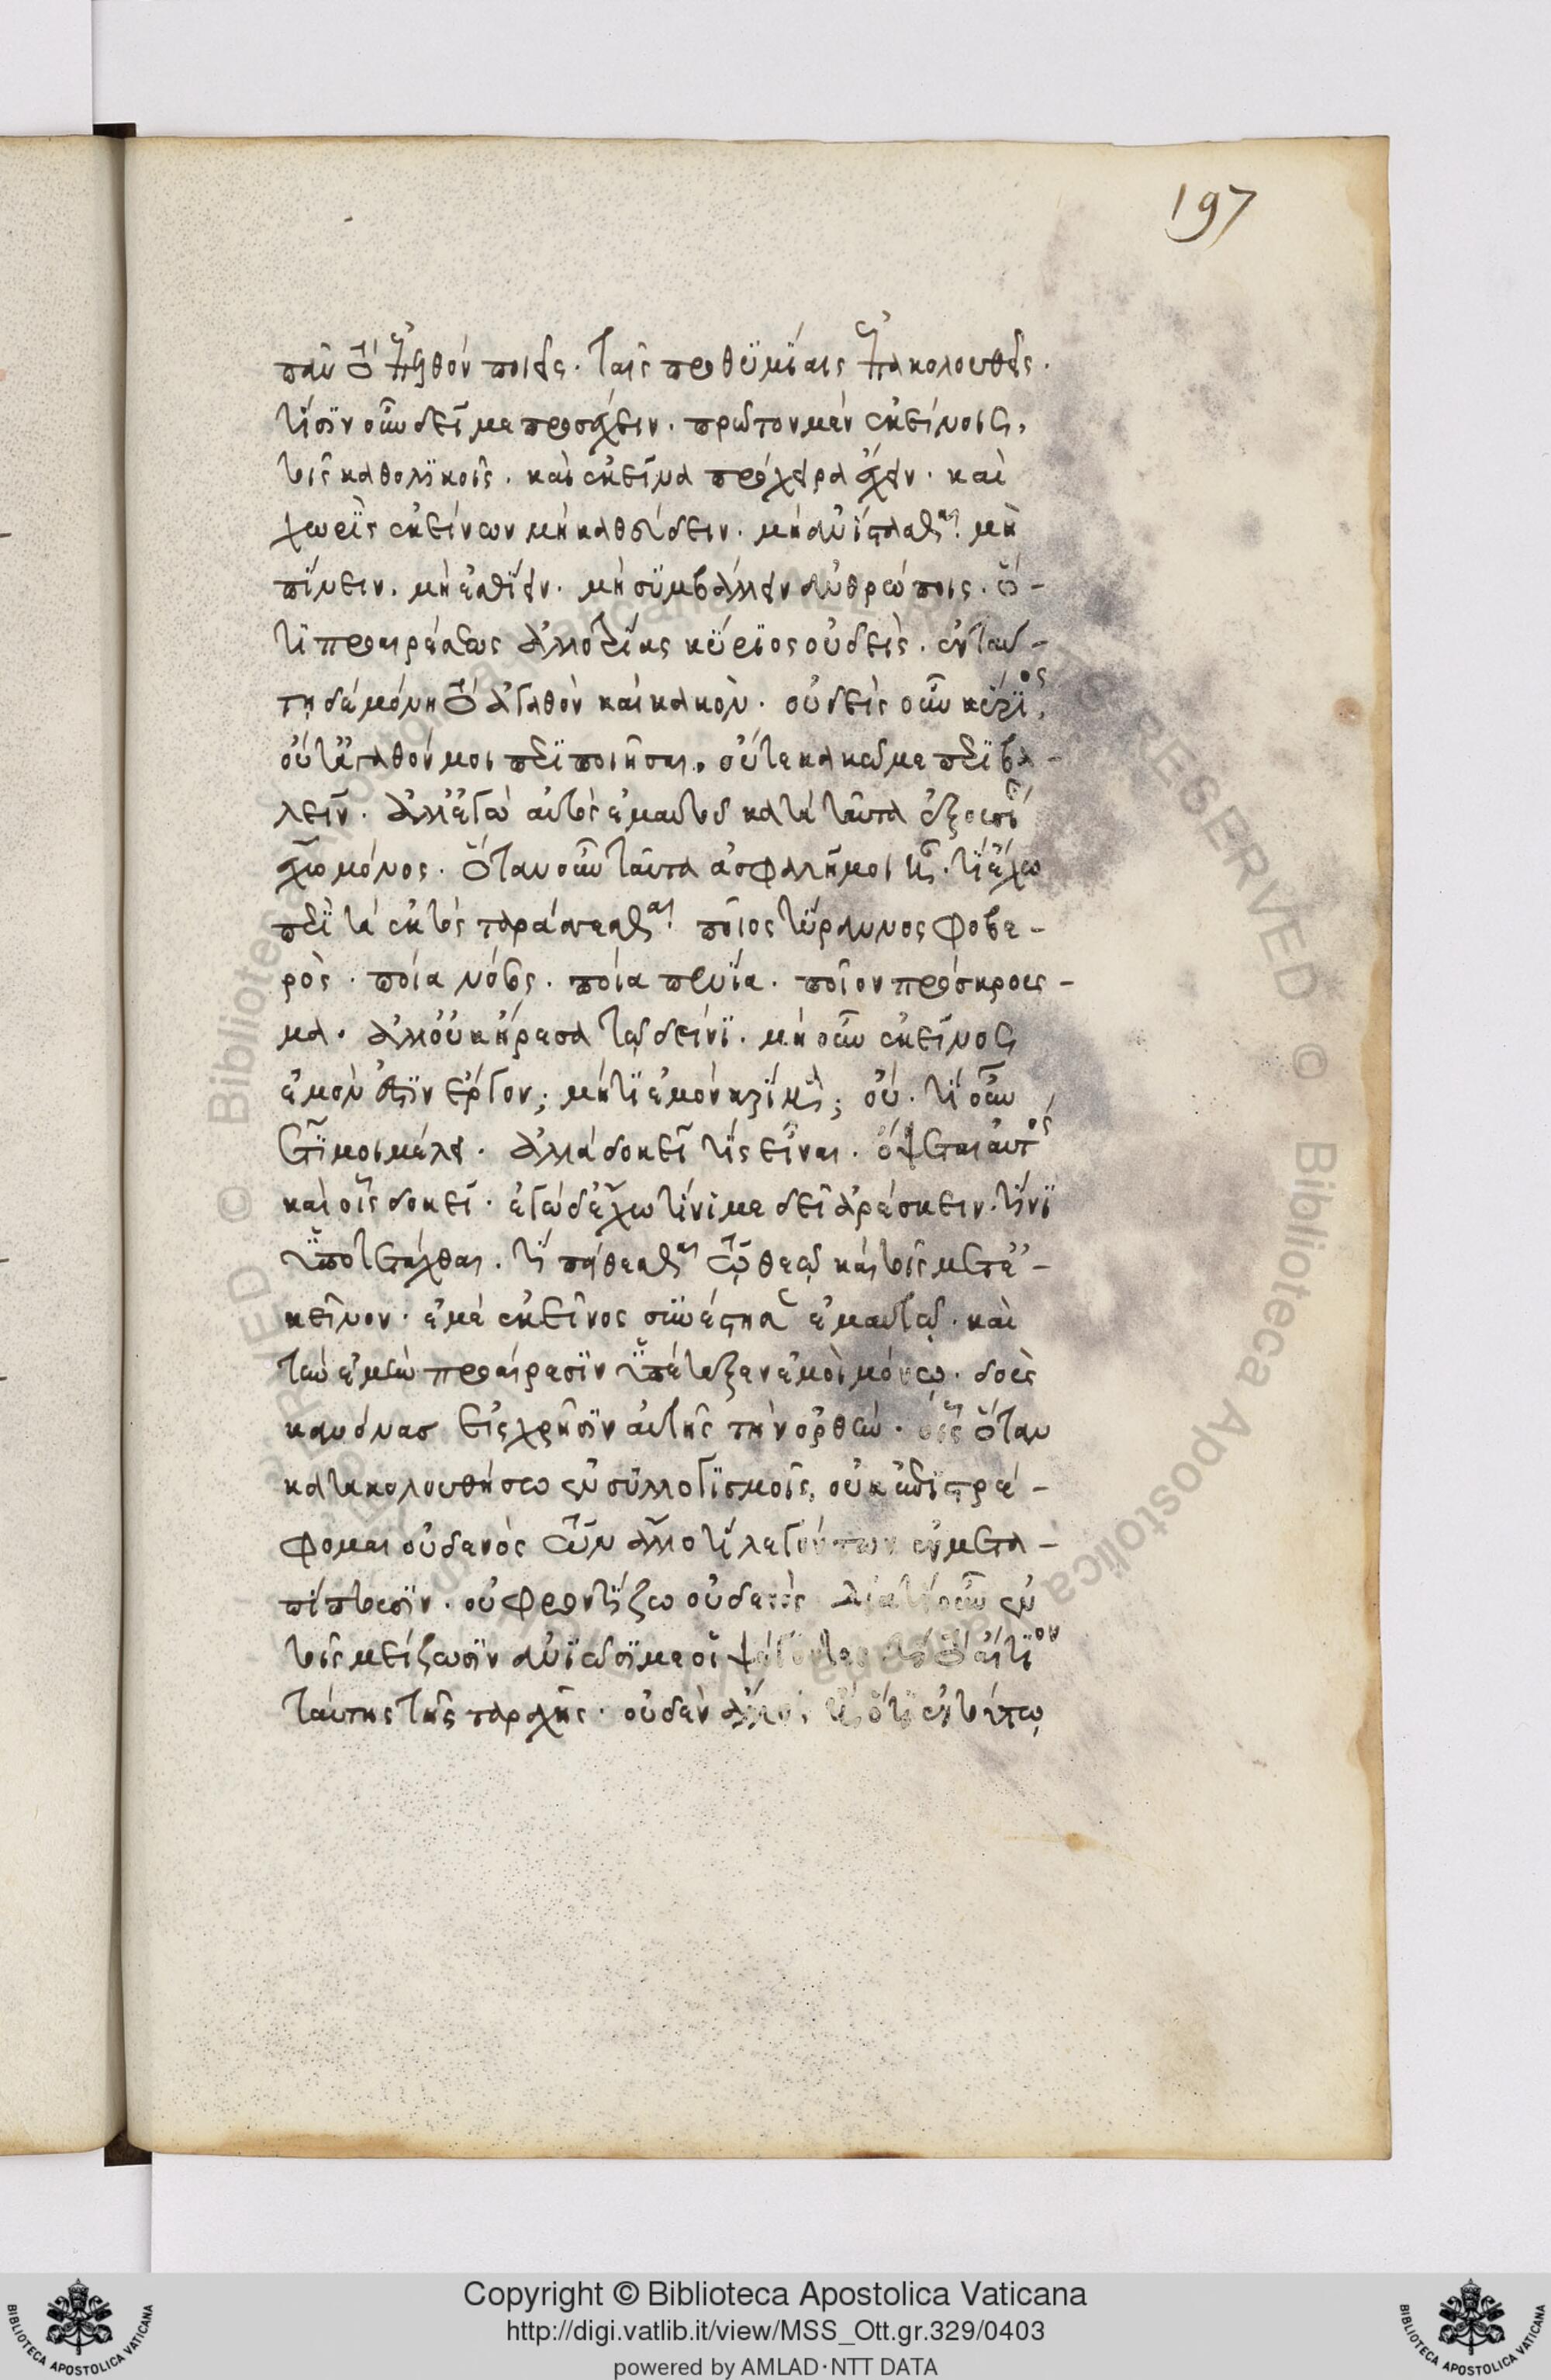 197
πᾶν τὸ ἐπελθὸν ποιεῖς. ταῖς προθυμίαις ἐπακολουθεῖς.
τίσιν οὖν δεῖ με προσέχειν. πρῶτον μὲν ἐκείνοις
τοῖς καθολικοῖς. καὶ ἐκεῖνα πρόχειρα ἔχειν. καὶ
χωρὶς ἐκείνων μὴ καθεύδειν. μὴ ἀνίστασθαι. μὴ
πίνειν. μὴ ἐσθίειν. μὴ συμβάλλειν ἀνθρώποις. ὅ-
τι προαιρέσεως ἀλλοτρίας κύριος οὐδείς. ἐν ταύ-
τῃ δὲ μόνῃ τὸ ἀγαθὸν καὶ κακόν. οὐδεὶς οὖν κύριος
οὔτ' ἀγαθόν μοι περιποιῆσαι, οὔτε κακῷ με περιβα-
λεῖν. ἀλλ' ἐγὼ αὐτὸς ἐμαυτοῦ κατὰ ταῦτα ἐξουσίαν
ἔχω μόνος. ὅταν οὖν ταῦτα ἀσφαλῆ μοι ᾖ. τί ἔχω
περὶ τὰ ἐκτὸς ταράσσεσθαι. ποῖος τύραννος φοβε-
ρός. ποία νόσος. ποία πενία. ποῖον πρόσκρουσ-
μα. ἀλλ' οὐκ ἤρεσα τῷ δεῖνι. μὴ οὖν ἐκεῖνος
ἐμόν ἐστιν ἔργον; μή τι ἐμὸν κρίμα; οὔ. τί οὖν
ἔτι μοι μέλει. ἀλλὰ δοκεῖ τις εἶναι. ὄψεται αὐτὸς
καὶ οἷς δοκεῖ. ἐγὼ δ' ἔχω τίνι με δεῖ ἀρέσκειν. τίνι
ὑποτετάχθαι. τίνι πείθεσθαι τῷ θεῷ καὶ τοῖς μετ' ἐ-
κεῖνον. ἐμὲ ἐκεῖνος συνέστησεν ἐμαυτῷ. καὶ
τὴν ἐμὴν προαίρεσιν ὑπέταξεν ἐμοὶ μόνῳ. δοὺς
κανόνας εἰς χρῆσιν αὐτῆς τὴν ὀρθήν. οἷς ὅταν
κατακολουθήσω ἐν συλλογισμοῖς, οὐκ ἐπιστρέ-
φομαι οὐδενὸς τῶν ἄλλο τι λεγόντων ἐν μετα-
πίπτουσιν. οὐ φροντίζω οὐδενός διὰ τί οὖν ἐν
τοῖς μείζοσιν ἀνιῶσί με οἱ ψέγοντες τί τὸ αἴτιον
ταύτης τῆς ταραχῆς. οὐδὲν ἄλλο ἢ ὅτι ἐν τούτῳ
Copyright © Biblioteca Apostolica Vaticana
http://digi.vatlib.it/view/MSS_Ott.gr.329/0403
powered by AMLAD·NTT DATA